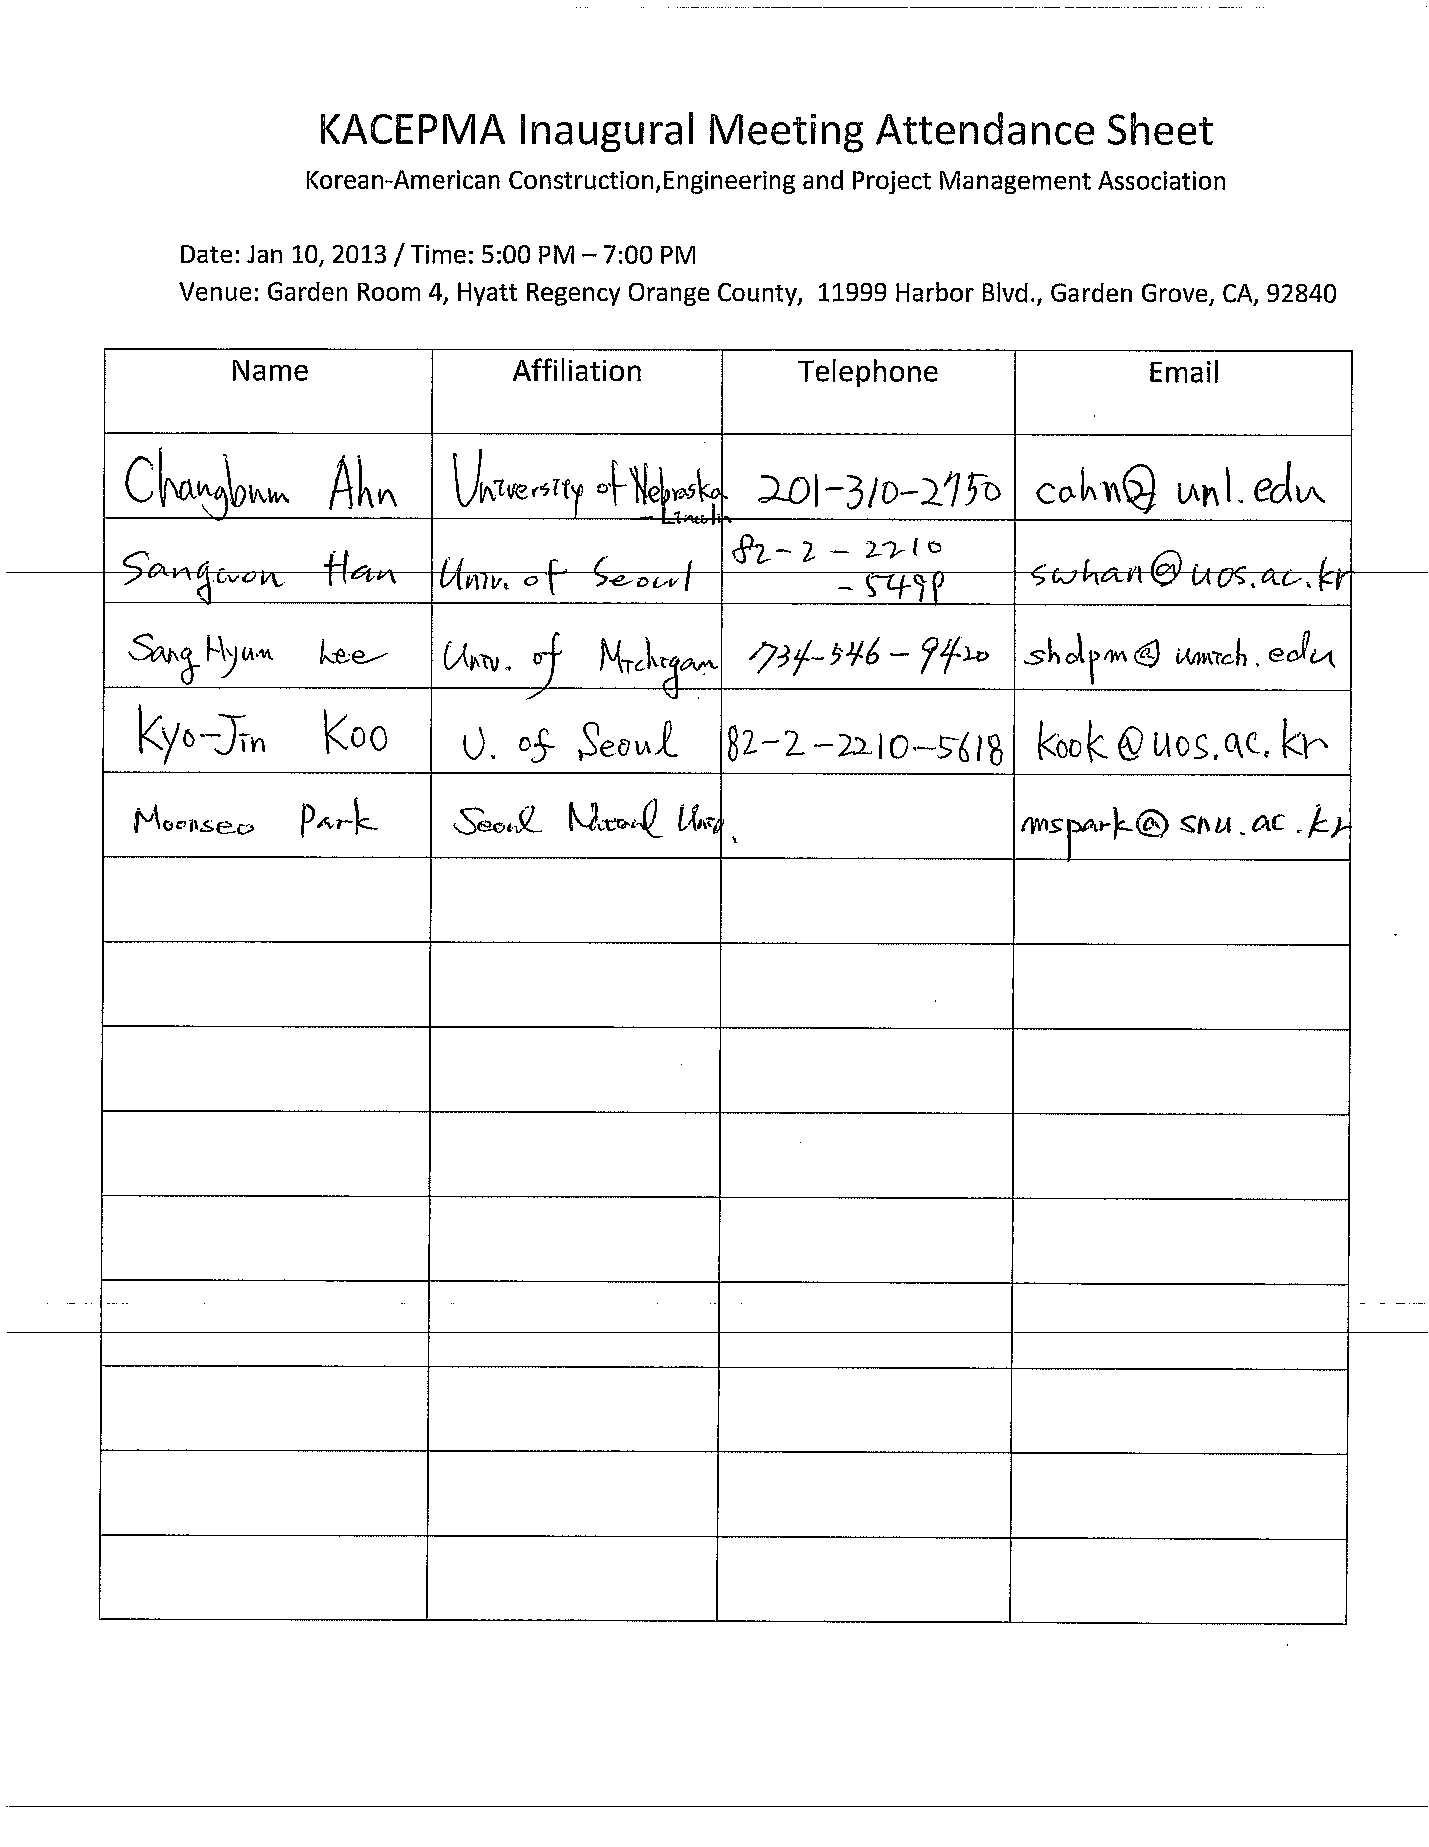 KACEPMA Inaugural Meeting Attendance Sheet
Korean-American Construction,Engineering and Project Management Association
Date: Jan 10, 2013 / Time: 5:00 PM – 7:00 PM
Venue: Garden Room 4, Hyatt Regency Orange County, 11999 Harbor Blvd., Garden Grove, CA, 92840
Name Affiliation Telephone Email
Changbum Ahn University of Nebraska 201-310-2750 cahn@unl.edu
- Lincoln
Sangwon Han Univ. of Seoul 82-2-2210 swhan@uos.ac.kr
-5499
SangHyun Lee Univ. of Michigan 734-546-9420 shdpm@umich.edu
Kyo-Jin Koo U. of Seoul 82-2-2210-5618 kook@uos.ac.kr
Moonseo Park Seoul Univ. mspark@snu.ac.kr